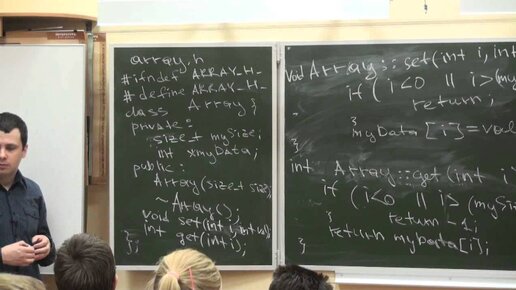 array.h
#ifndef ARRAY_H_
#define ARRAY_H_
class Array {
private:
size_t mySize;
int *myData;
public:
Array(size_t size);
~Array();
void set(int i, int val);
int get(int i);
};
void Array::set(int i, int
if (i<0 || i>(my
return;
}
myData[i]=val
}
int Array::get(int i
if (i<0 || i>(mySi
return -1;
return myData[i];
}